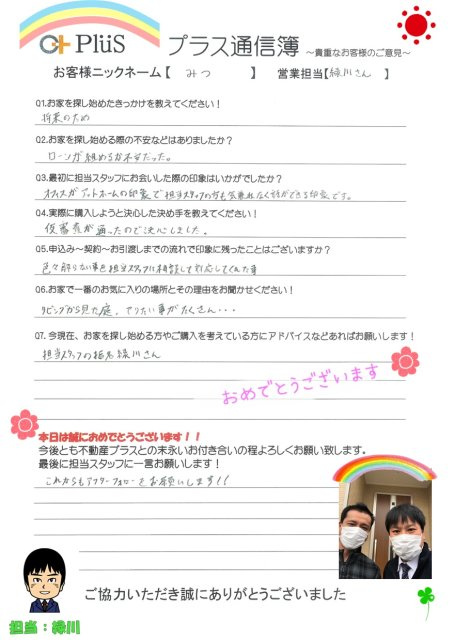 PlüS プラス通信簿 ～貴重なお客様のご意見～
お客様ニックネーム【 みつ 】 営業担当【緑川さん 】
Q1.お家を探し始めたきっかけを教えてください！
将来のため
Q2.お家を探し始める際の不安などはありましたか？
ローンが組めるか不安だった。
Q3.最初に担当スタッフにお会いした際の印象はいかがでしたか？
オフィスがアットホームの印象で担当スタッフの方も気兼ねなく話ができる印象です。
Q4.実際に購入しようと決心した決め手を教えてください！
仮審査が通ったので決心しました。
Q5.申込み～契約～お引渡しまでの流れで印象に残ったことはございますか？
色々解らない事を担当スタッフに相談して対応してくれた事
Q6.お家で一番のお気に入りの場所とその理由をお聞かせください！
リビングから見た庭、やりたい事がたくさん・・・
Q7.今現在、お家を探し始める方やご購入を考えている方にアドバイスなどあればお願いします！
担当スタッフの指名緑川さん
おめでとうございます
本日は誠におめでとうございます！！
今後とも不動産プラスとの末永いお付き合いの程よろしくお願い致します。
最後に担当スタッフに一言お願いします！
これからもアフターフォローをお願いします！！
ご協力いただき誠にありがとうございました
担当：緑川